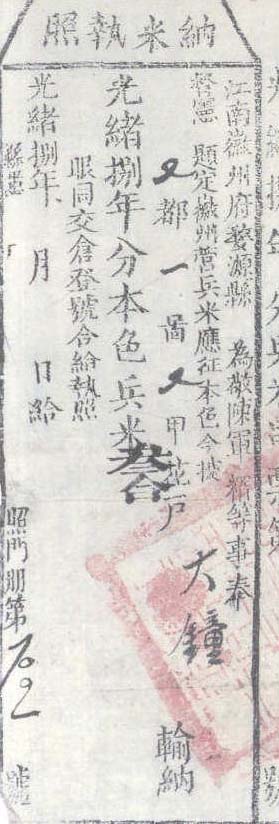 納米執照
江南徽州府婺源縣 為敬陳軍糈等事奉
督憲 題定徽州營兵米應征本色今據
都一啚 甲花戶 大鐘 輸納
光緒捌年分本色兵米叁合
眼同交倉登號合給執照
光緒捌年 月 日給
縣憲 照門册第 號